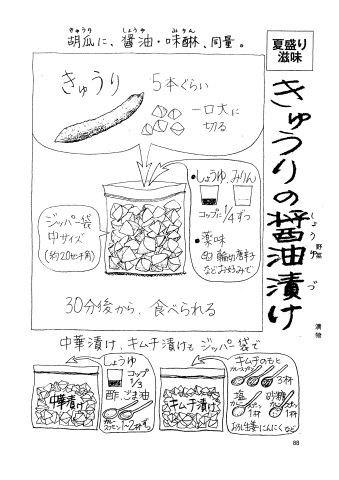 夏盛り
滋味
きゅうりの醤油漬け
しょうゆづ
野菜
漬物
きゅうり しょうゆ みりん
胡瓜に、醤油・味醂、同量。
きゅうり 5本ぐらい
一口大に
切る
•しょうゆ、みりん
コップに1/4ずつ
•薬味
輪切唐辛子
などお好みで
ジッパー袋
中サイズ
(約20センチ角)
30分後から、食べられる
中華漬け、キムチ漬けも ジッパー袋で
中華漬け
しょうゆ
コップ
1/3
酢、ごま油
カレースプーン 1~2杯ずつ
キムチ漬け
キムチのもと
カレースプーン
3杯
塩 砂糖
カレースプーン 1杯 カレースプーン 1杯
おろし生姜・にんにくなど
88